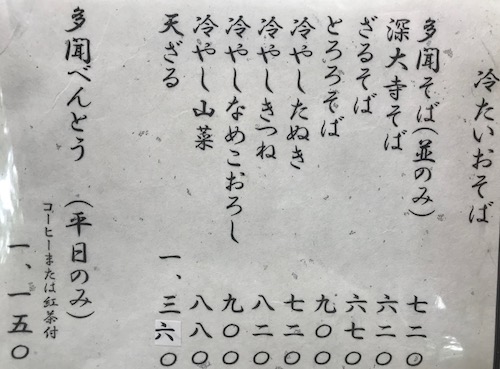 冷たいおそば
多聞そば(並のみ) 七二〇
深大寺そば 六二〇
ざるそば 六七〇
とろろそば 九〇〇
冷やしたぬき 七二〇
冷やしきつね 八二〇
冷やしなめこおろし 九〇〇
冷やし山菜 八八〇
天ざる 一、三六〇
多聞べんとう (平日のみ)
コーヒーまたは紅茶付
一、一五〇